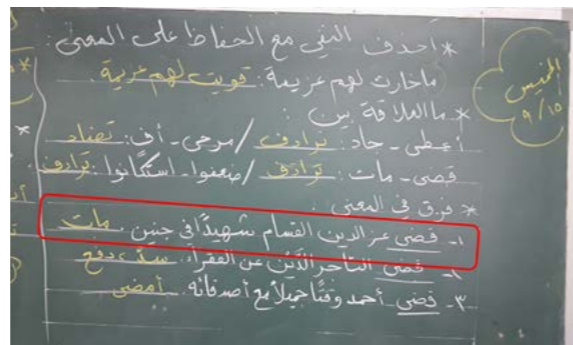 * احذف النفي مع الحفاظ على المعنى :
ماخارت لهم عزيمة : قويت لهم عزيمة.
* ما العلاقة بين :
أعطى - جاد : ترادف / مرحى - أف : تضاد
قضى - مات : ترادف / ضعفوا - استكانوا : ترادف
* فرق في المعنى :
١- قضى عز الدين القسام شهيدًا في جنين . مات
٢- قضى التاجر الدَّيْن عن الفقراء . سدد، دفع
٣- قضى أحمد وقتًا جميلًا مع أصدقائه . أمضى
الخميس
٩/١٥